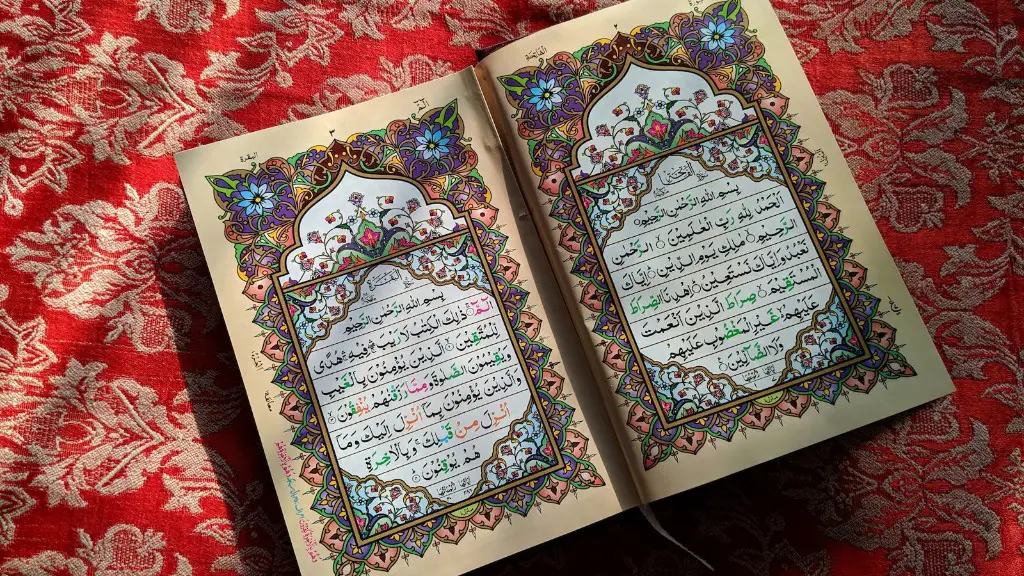 الفاتحة
٢
بِسْمِ اللهِ الرَّحْمٰنِ الرَّحِيْمِ
اَلْحَمْدُ لِلّٰهِ رَبِّ الْعٰلَمِيْنَ ۙ الرَّحْمٰنِ
الرَّحِيْمِ ۙ مٰلِكِ يَوْمِ الدِّيْنِ ؕ اِيَّاكَ
نَعْبُدُ وَاِيَّاكَ نَسْتَعِيْنُ ؕ اِهْدِنَا الصِّرَاطَ
الْمُسْتَقِيْمَ ۙ صِرَاطَ الَّذِيْنَ اَنْعَمْتَ
عَلَيْهِمْ ۙ غَيْرِ الْمَغْضُوْبِ عَلَيْهِمْ
وَلَا الضَّآلِّيْنَ
البقرة
٣
الٓمّٓ
بِسْمِ اللهِ الرَّحْمٰنِ الرَّحِيْمِ
الٓمّٓ ۚ ذٰلِكَ الْكِتٰبُ لَا رَيْبَ ۛ فِيْهِ ۛ هُدًى
لِّلْمُتَّقِيْنَ ۙ الَّذِيْنَ يُؤْمِنُوْنَ بِالْغَيْبِ
وَيُقِيْمُوْنَ الصَّلٰوةَ وَمِمَّا رَزَقْنٰهُمْ يُنْفِقُوْنَ ۙ
وَالَّذِيْنَ يُؤْمِنُوْنَ بِمَاۤ اُنْزِلَ اِلَيْكَ وَمَاۤ
اُنْزِلَ مِنْ قَبْلِكَ ۚ وَبِالْاٰخِرَةِ
هُمْ يُوْقِنُوْنَ ؕ